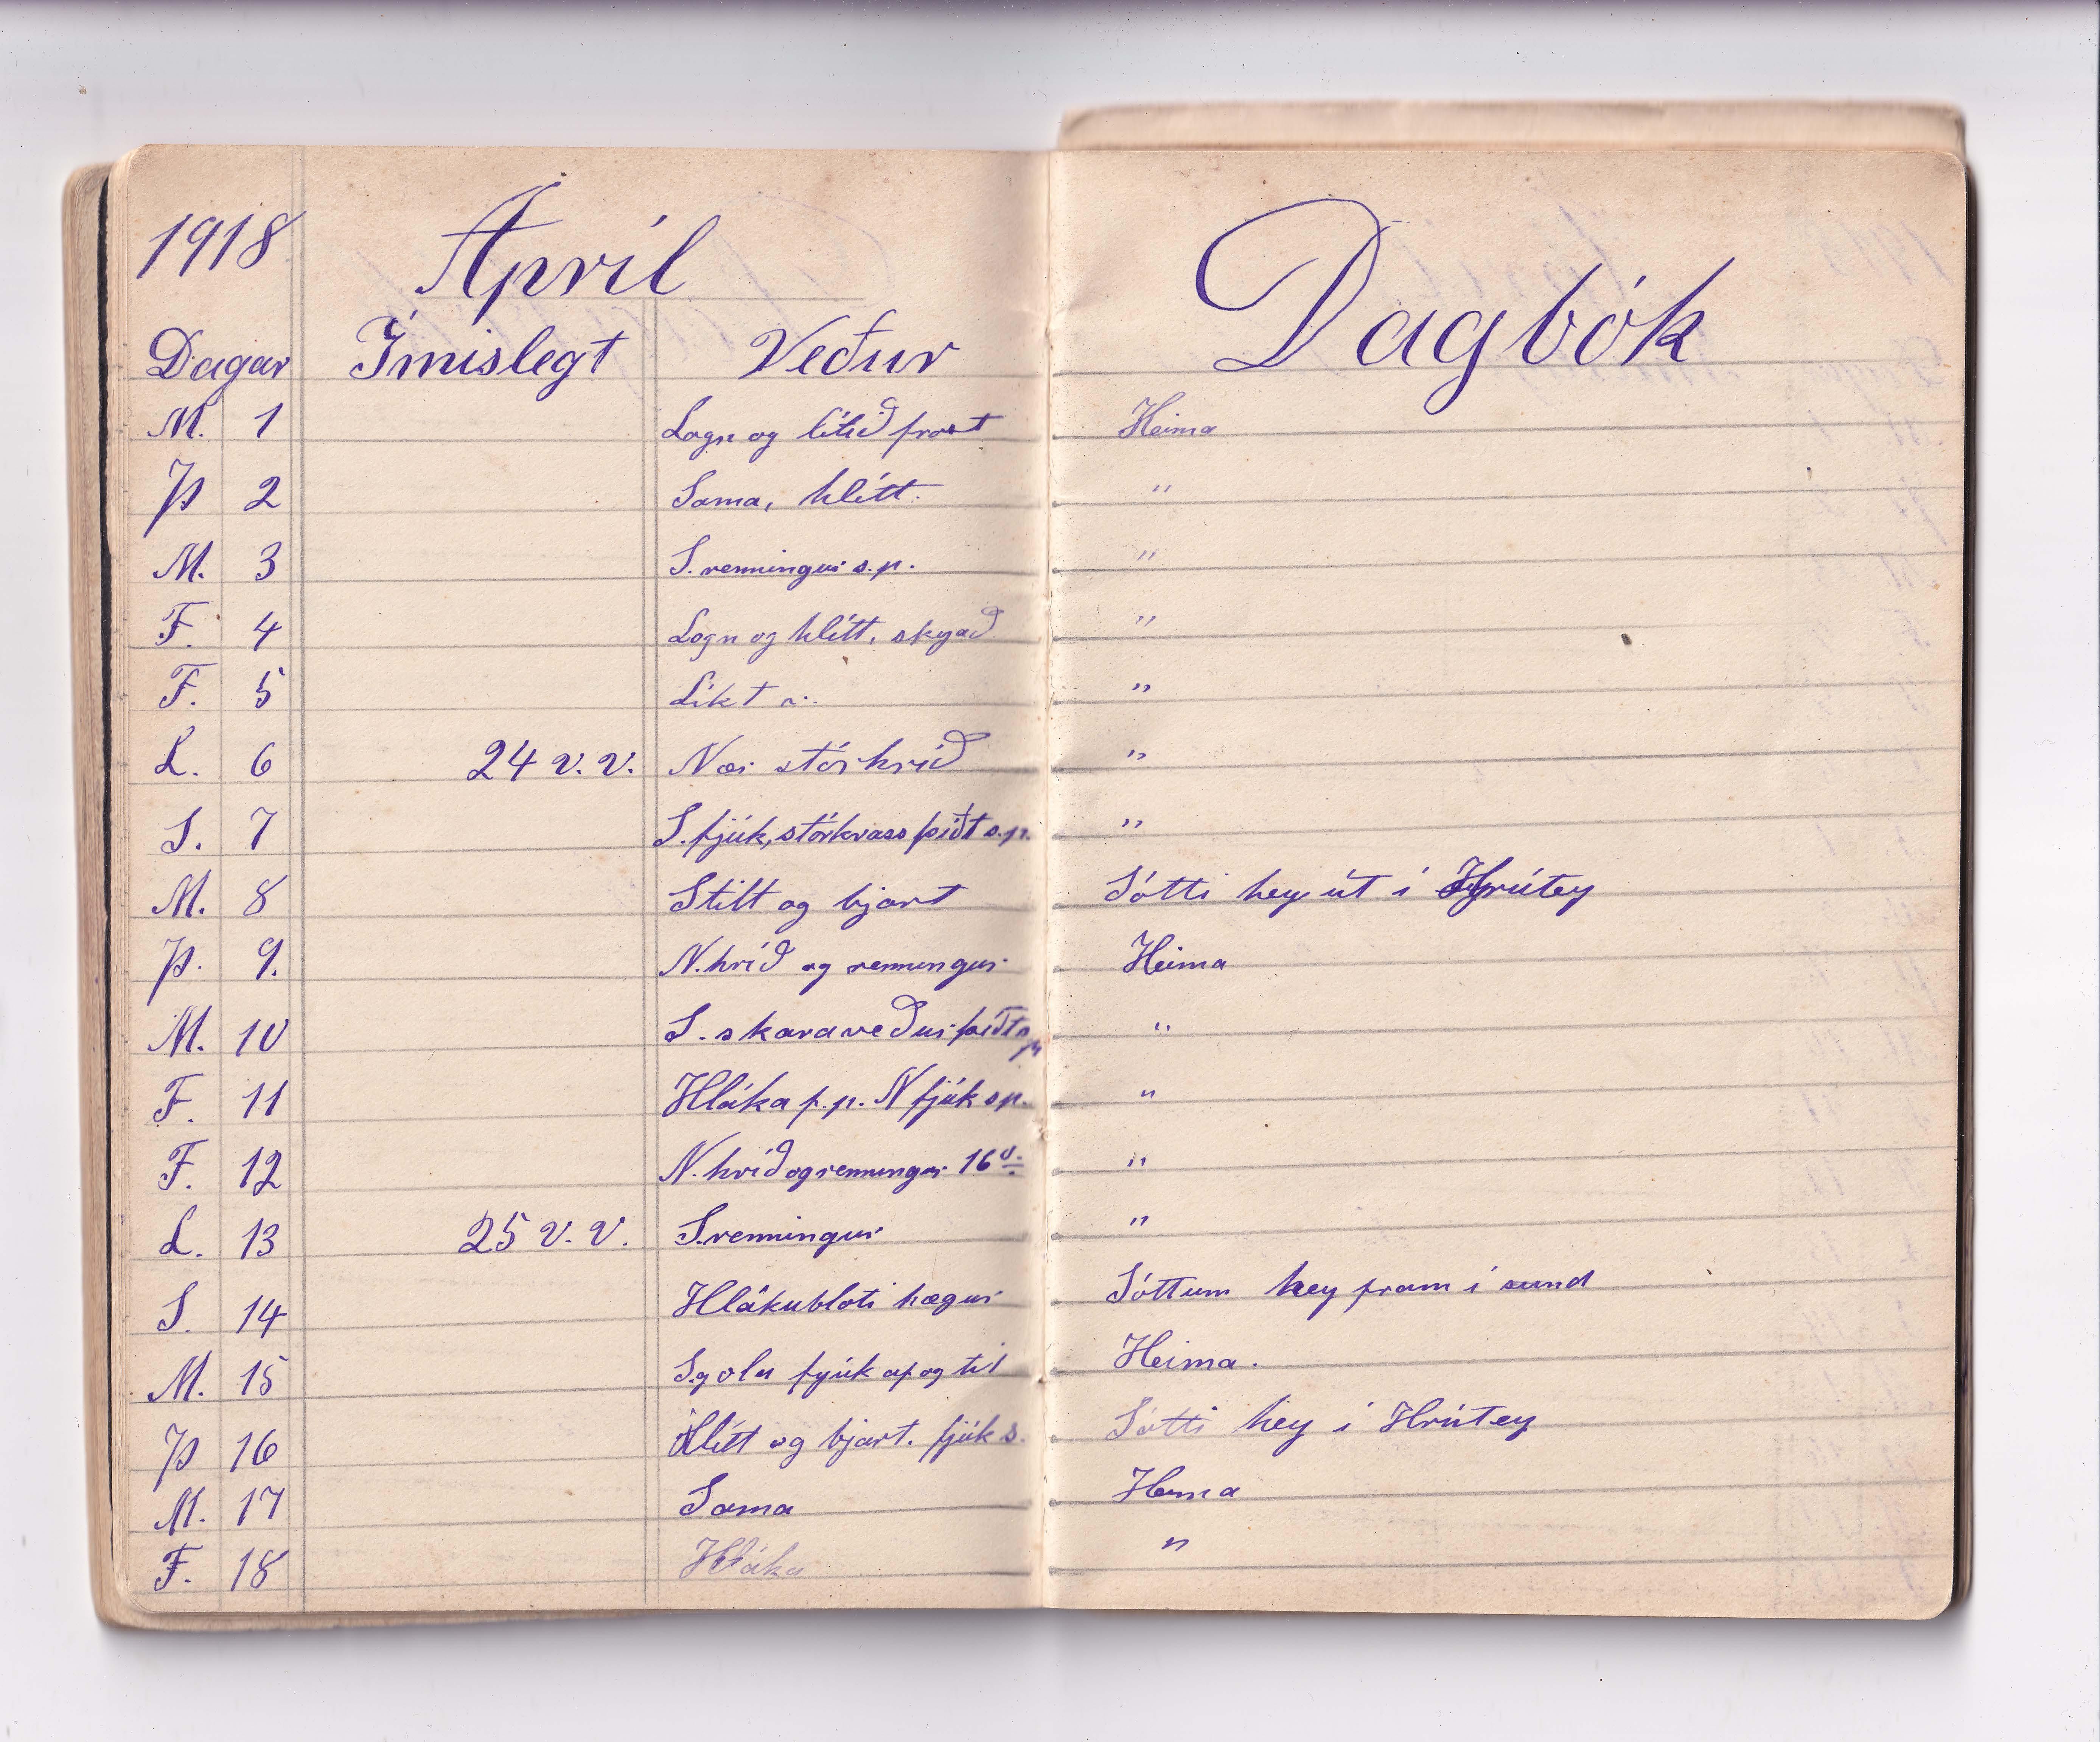 1918 Apríl Dagbók
Dagar Ímislegt Veður
M. 1 Logn og lítið frost Heima
Þ 2 Sama, hlítt. "
M. 3 S. renningur s.p. "
F. 4 Logn og hlítt, skyað "
F. 5 Líkt "
L. 6 24 v.v. Nor stórhríð "
S. 7 S. fjúk, stórhvass þíðt s.p. "
M. 8 Stilt og bjart Sótti hey út í Hrútey
Þ. 9. N. hríð og renningur Heima
M. 10 S. skaraveður þíðt s.p. "
F. 11 Hláka f.p. N fjúk s.p. "
F. 12 N. hríð og renningur 16° "
L. 13 25 v.v. S. renningur "
S. 14 Hlákubloti hægur Sóttum hey fram í sund
M. 15 S. gola fjúk af og til Heima.
Þ 16 Hlítt og bjart. fjúk s. Sótti hey í Hrútey
M. 17 Sama Heima
F. 18 Hláka "